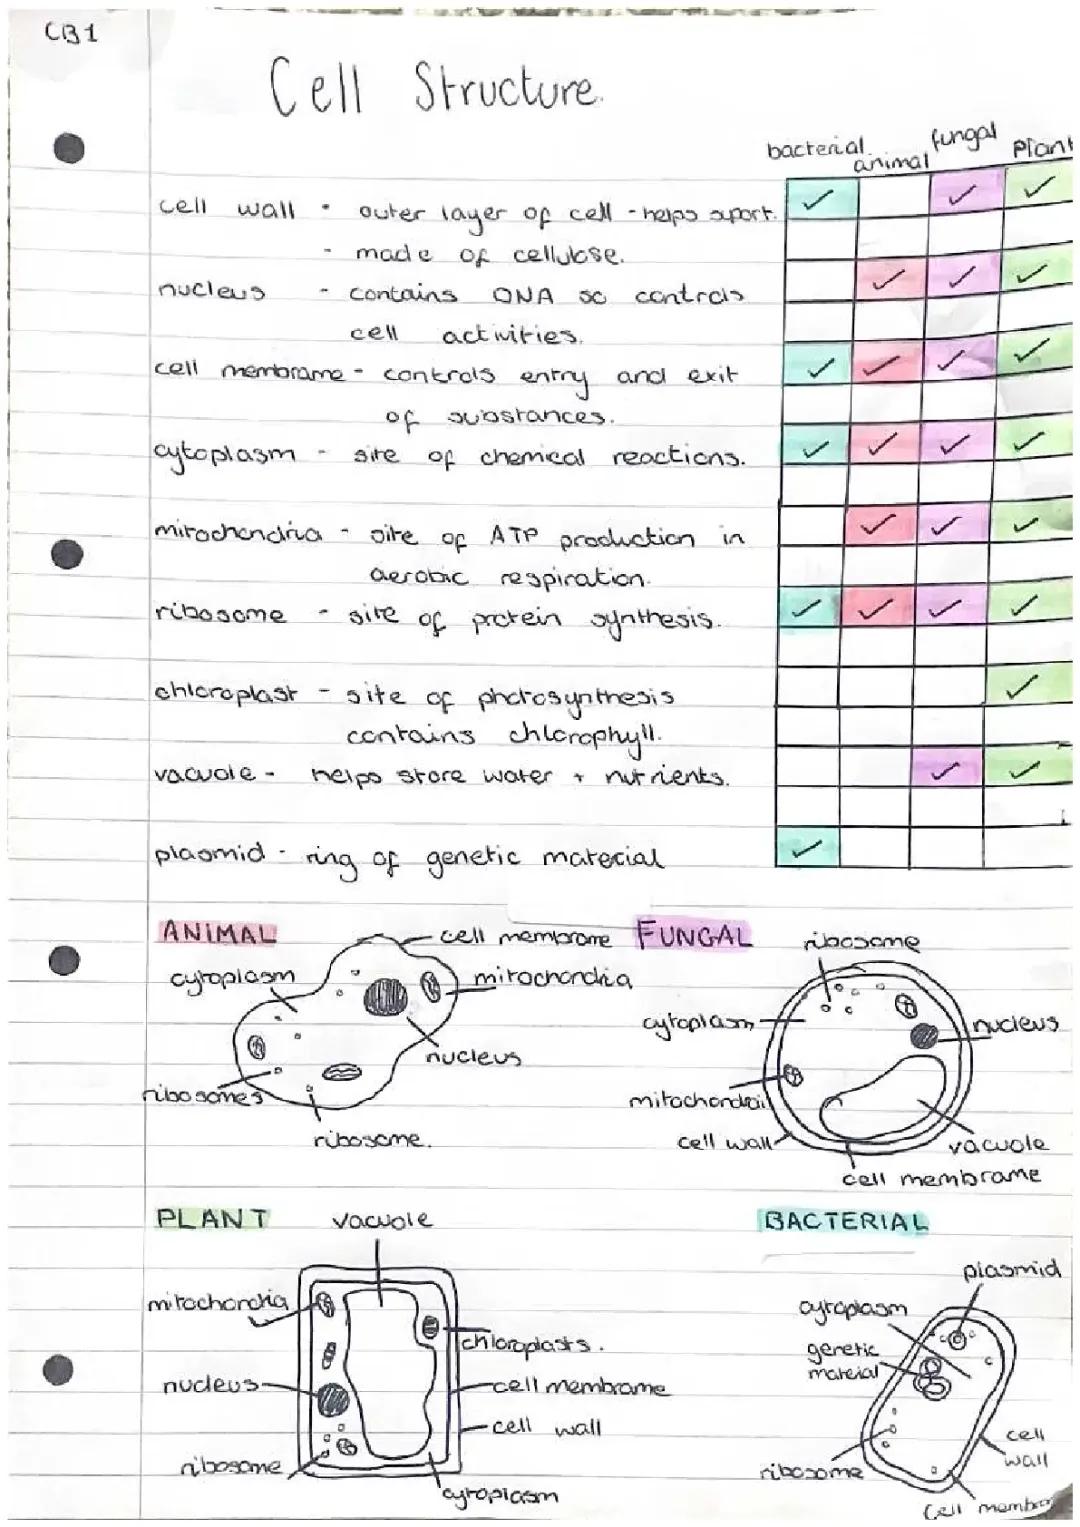 CB1
Cell Structure.
bacterial animal fungal plant
cell wall • outer layer of cell - helps suport.
- made of cellulose.
nucleus - contains DNA so controls
cell activities.
cell membrame - controls entry and exit
of substances.
cytoplasm - site of chemical reactions.
mitochondria - site of ATP production in
aerobic respiration.
ribosome - site of protein synthesis.
chloroplast - site of photosynthesis
contains chlorophyll.
vacuole - helps store water + nutrients.
plasmid - ring of genetic material
ANIMAL
cell membrame
cytoplasm
mitochondria
nucleus
ribosomes
ribosome.
FUNGAL
ribosome
cytoplasm
nucleus
mitochondrai
cell wall
vacuole
cell membrame
PLANT
vacuole
mitochondria
chloroplasts.
nucleus
cell membrame
cell wall
ribosome
cytoplasm
BACTERIAL
plasmid
cytoplasm
genetic
material
cell
wall
ribosome
cell membra